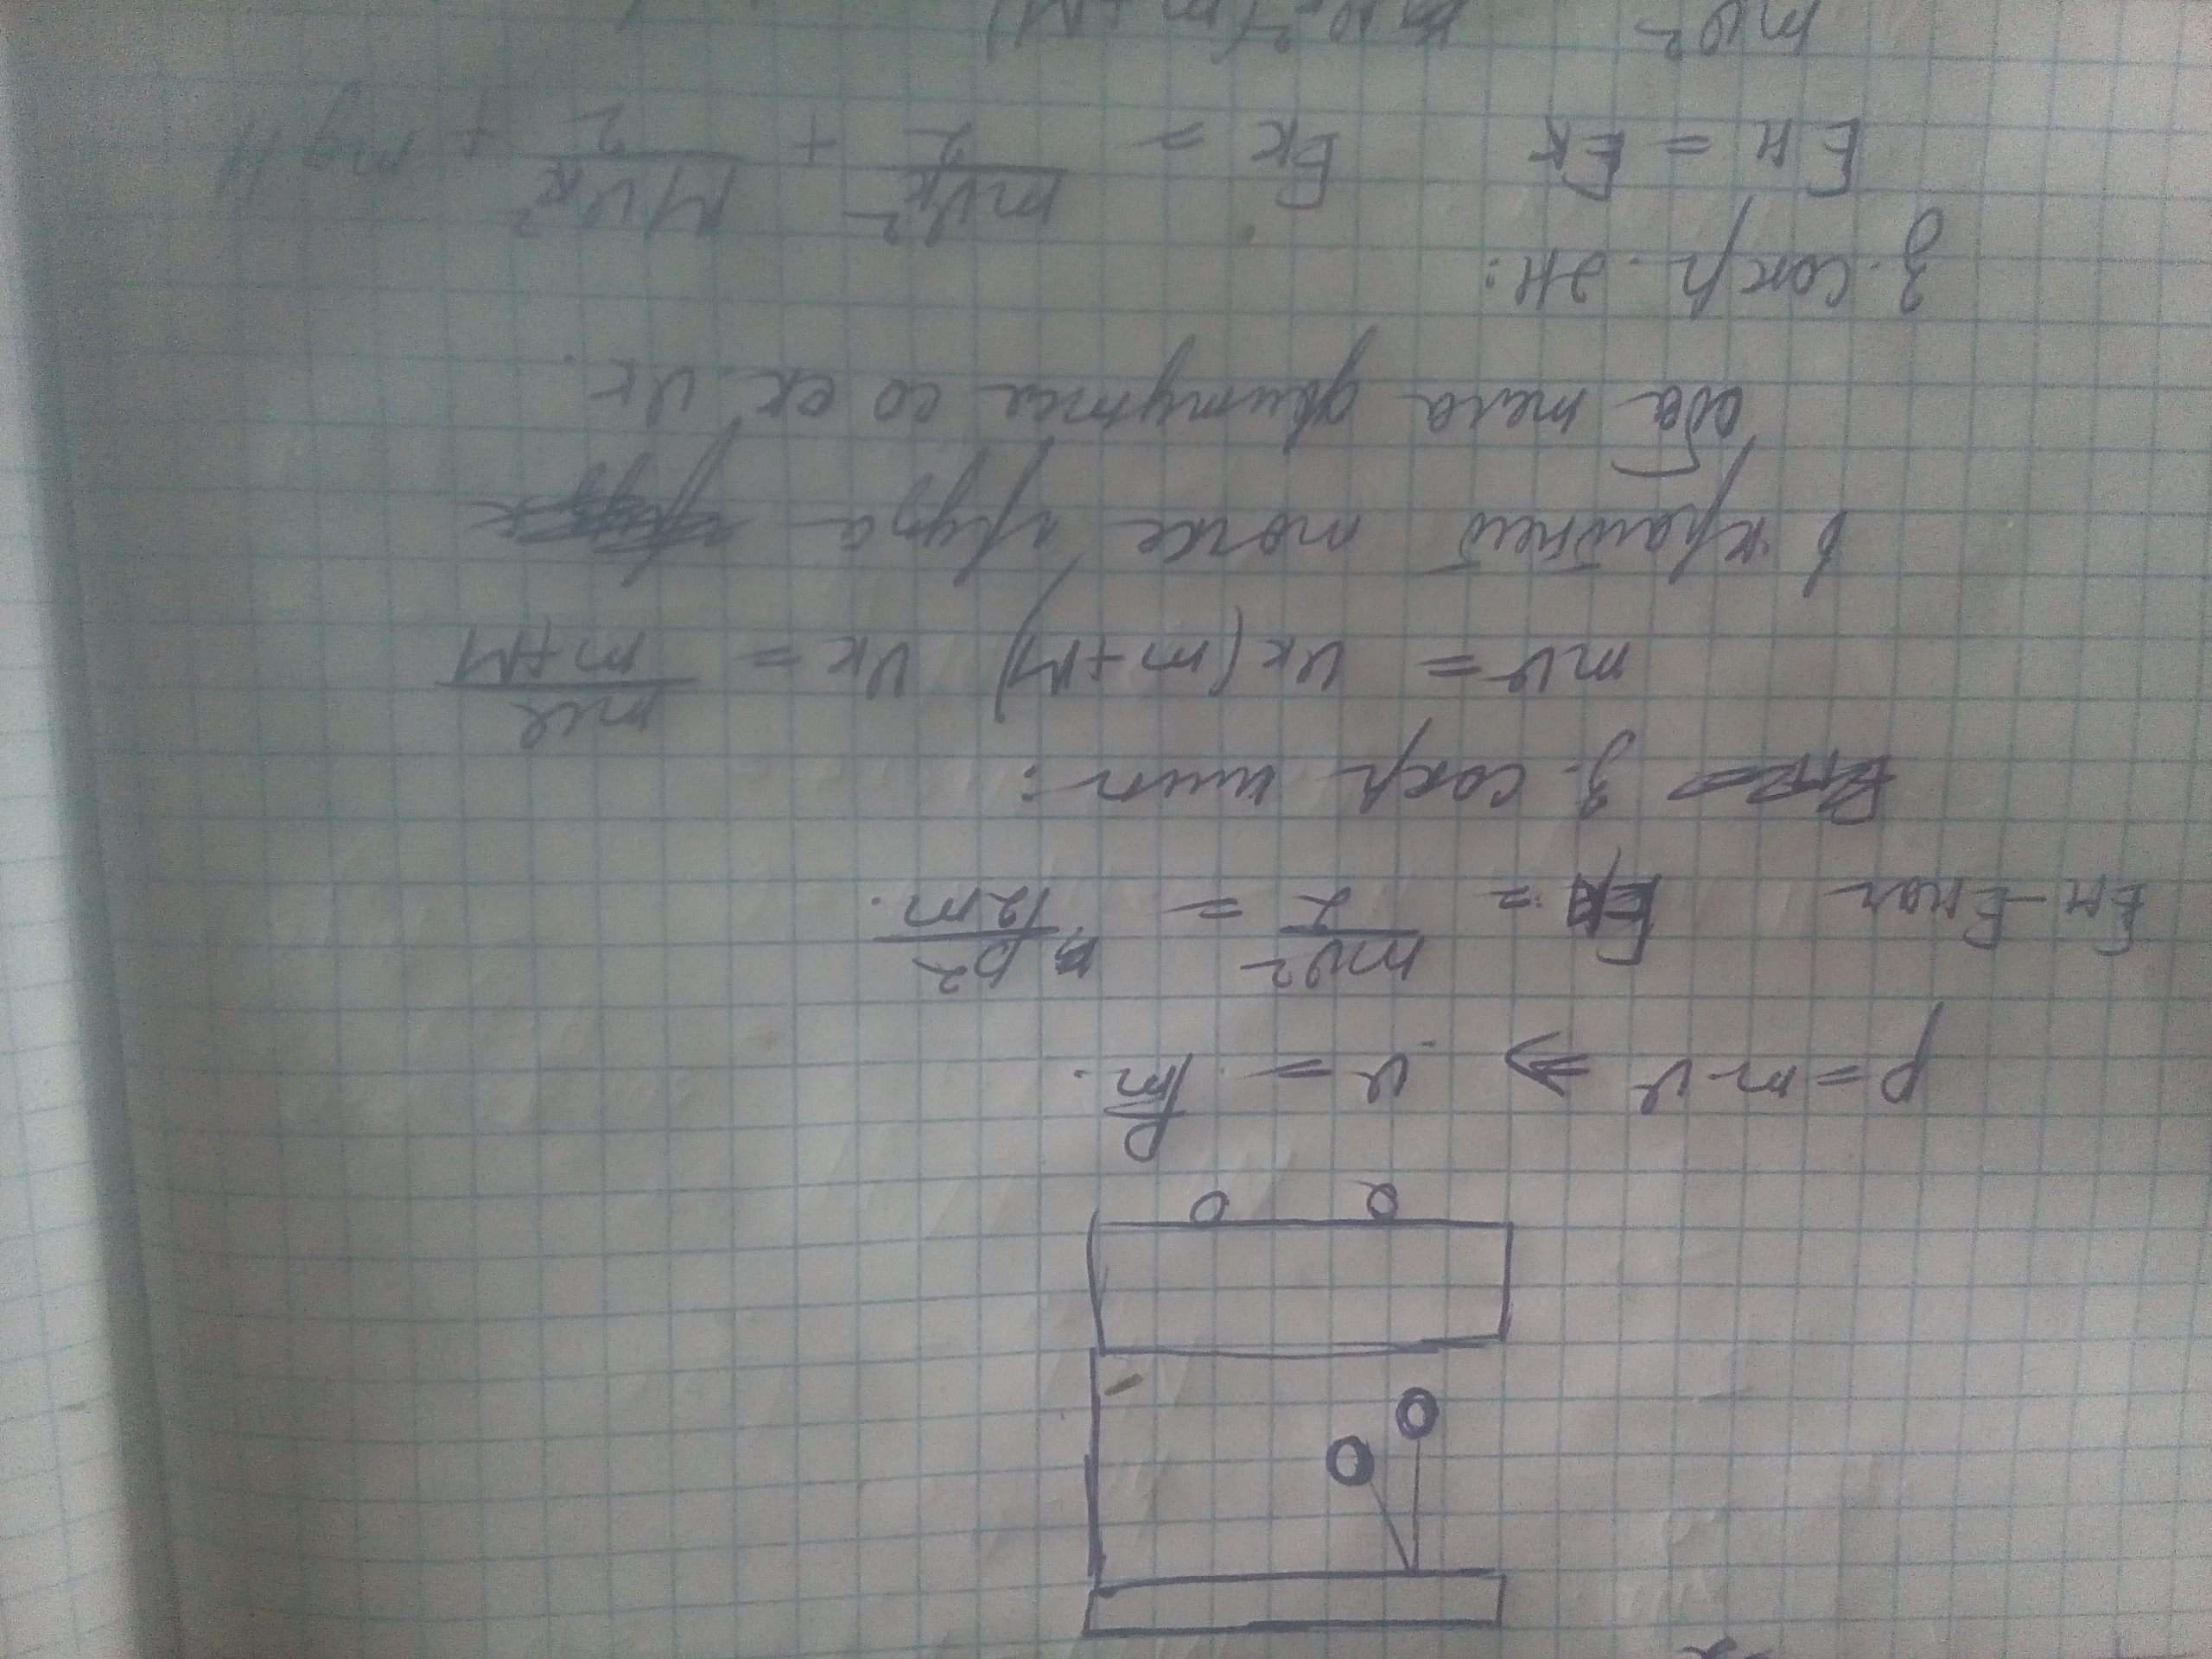 p = mv ⇒ v = p/m.
Eн - Eнач E = mv²/2 = p²/2m.
з. сохр имп:
mv = vк(m+M) vк = mv/(m+M)
в крайней точке груза
оба тела движутся со ск. vк.
з. сохр. эн:
Eн = Eк Eк = mvк²/2 + Mvк²/2 + mgH
mv² vк²(m+M)